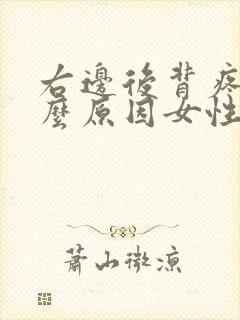 右邊後背疼
麼原因女性
蕭山微涼